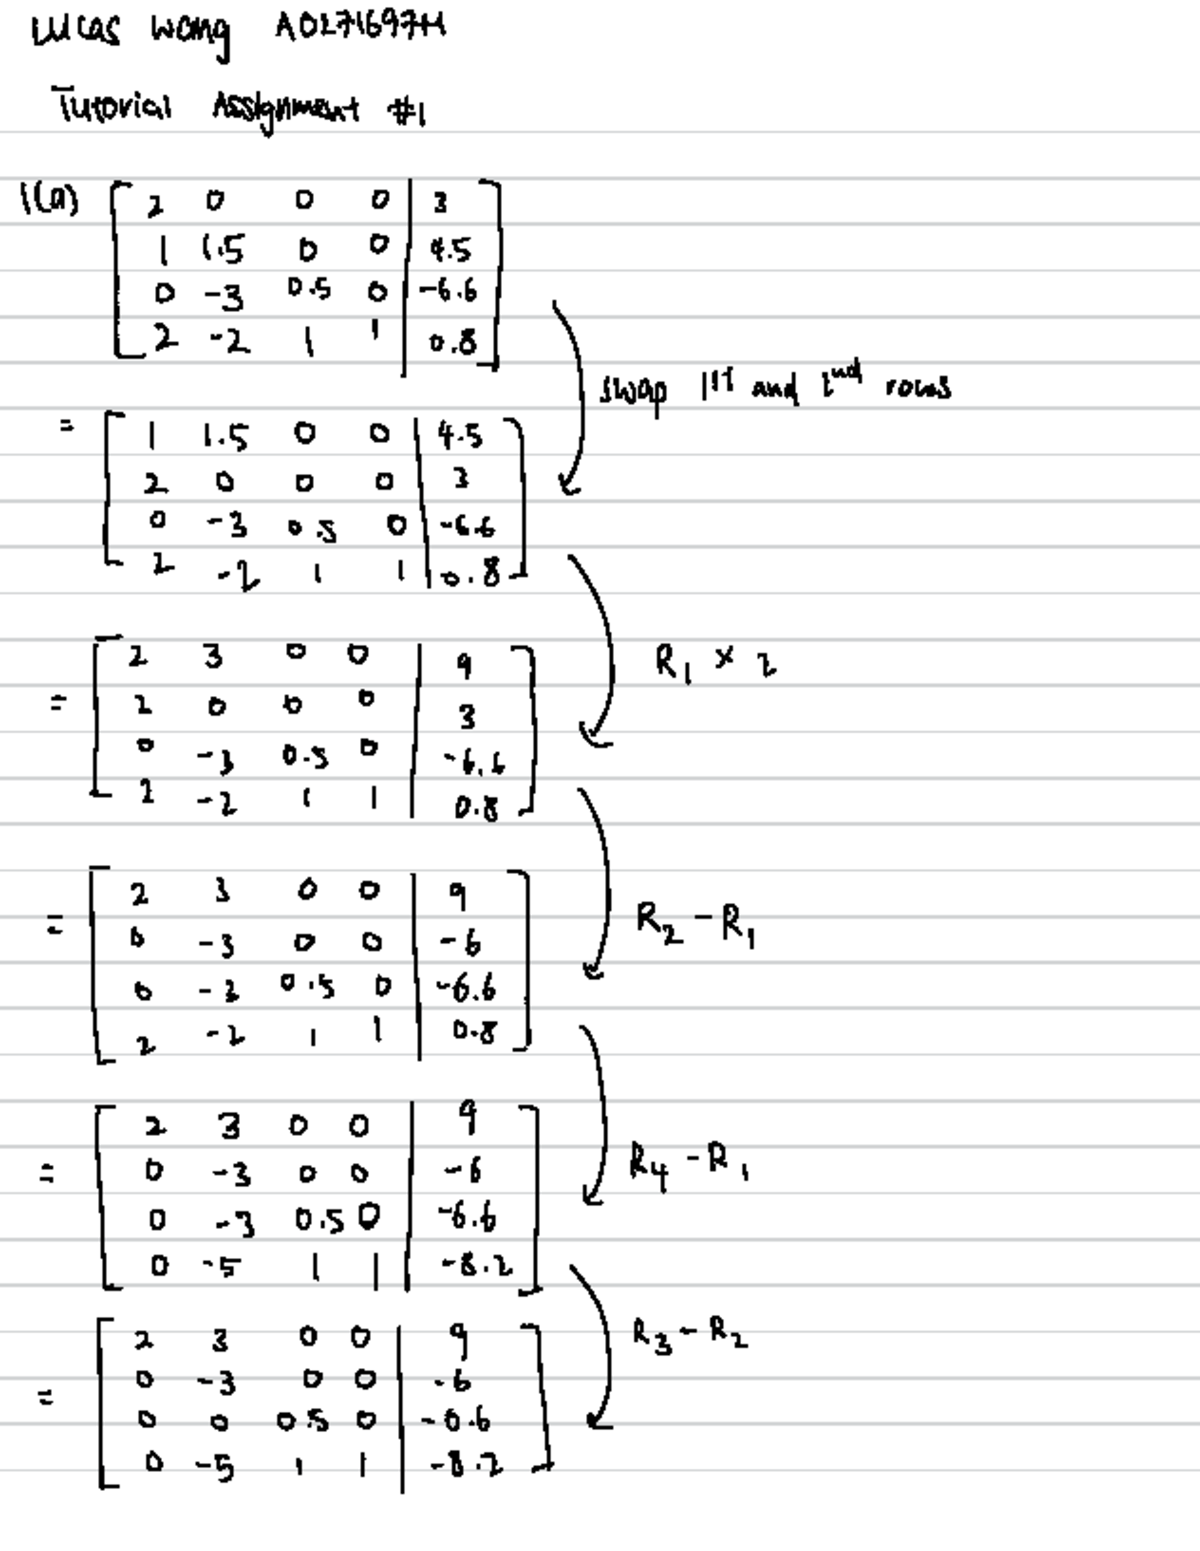 Lucas Wong A0271697H
Tutorial Assignment #1
1(a) [ 2 0 0 0 | 3 ]
1 1.5 0 0 | 4.5
0 -3 0.5 0 | -6.6
2 -2 1 1 | 0.8
swap 1st and 2nd rows
= [ 1 1.5 0 0 | 4.5 ]
2 0 0 0 | 3
0 -3 0.5 0 | -6.6
2 -2 1 1 | 0.8
R1 × 2
= [ 2 3 0 0 | 9 ]
2 0 0 0 | 3
0 -3 0.5 0 | -6.6
2 -2 1 1 | 0.8
R2 - R1
= [ 2 3 0 0 | 9 ]
0 -3 0 0 | -6
0 -3 0.5 0 | -6.6
2 -2 1 1 | 0.8
R4 - R1
= [ 2 3 0 0 | 9 ]
0 -3 0 0 | -6
0 -3 0.5 0 | -6.6
0 -5 1 1 | -8.2
R3 - R2
= [ 2 3 0 0 | 9 ]
0 -3 0 0 | -6
0 0 0.5 0 | -0.6
0 -5 1 1 | -8.2